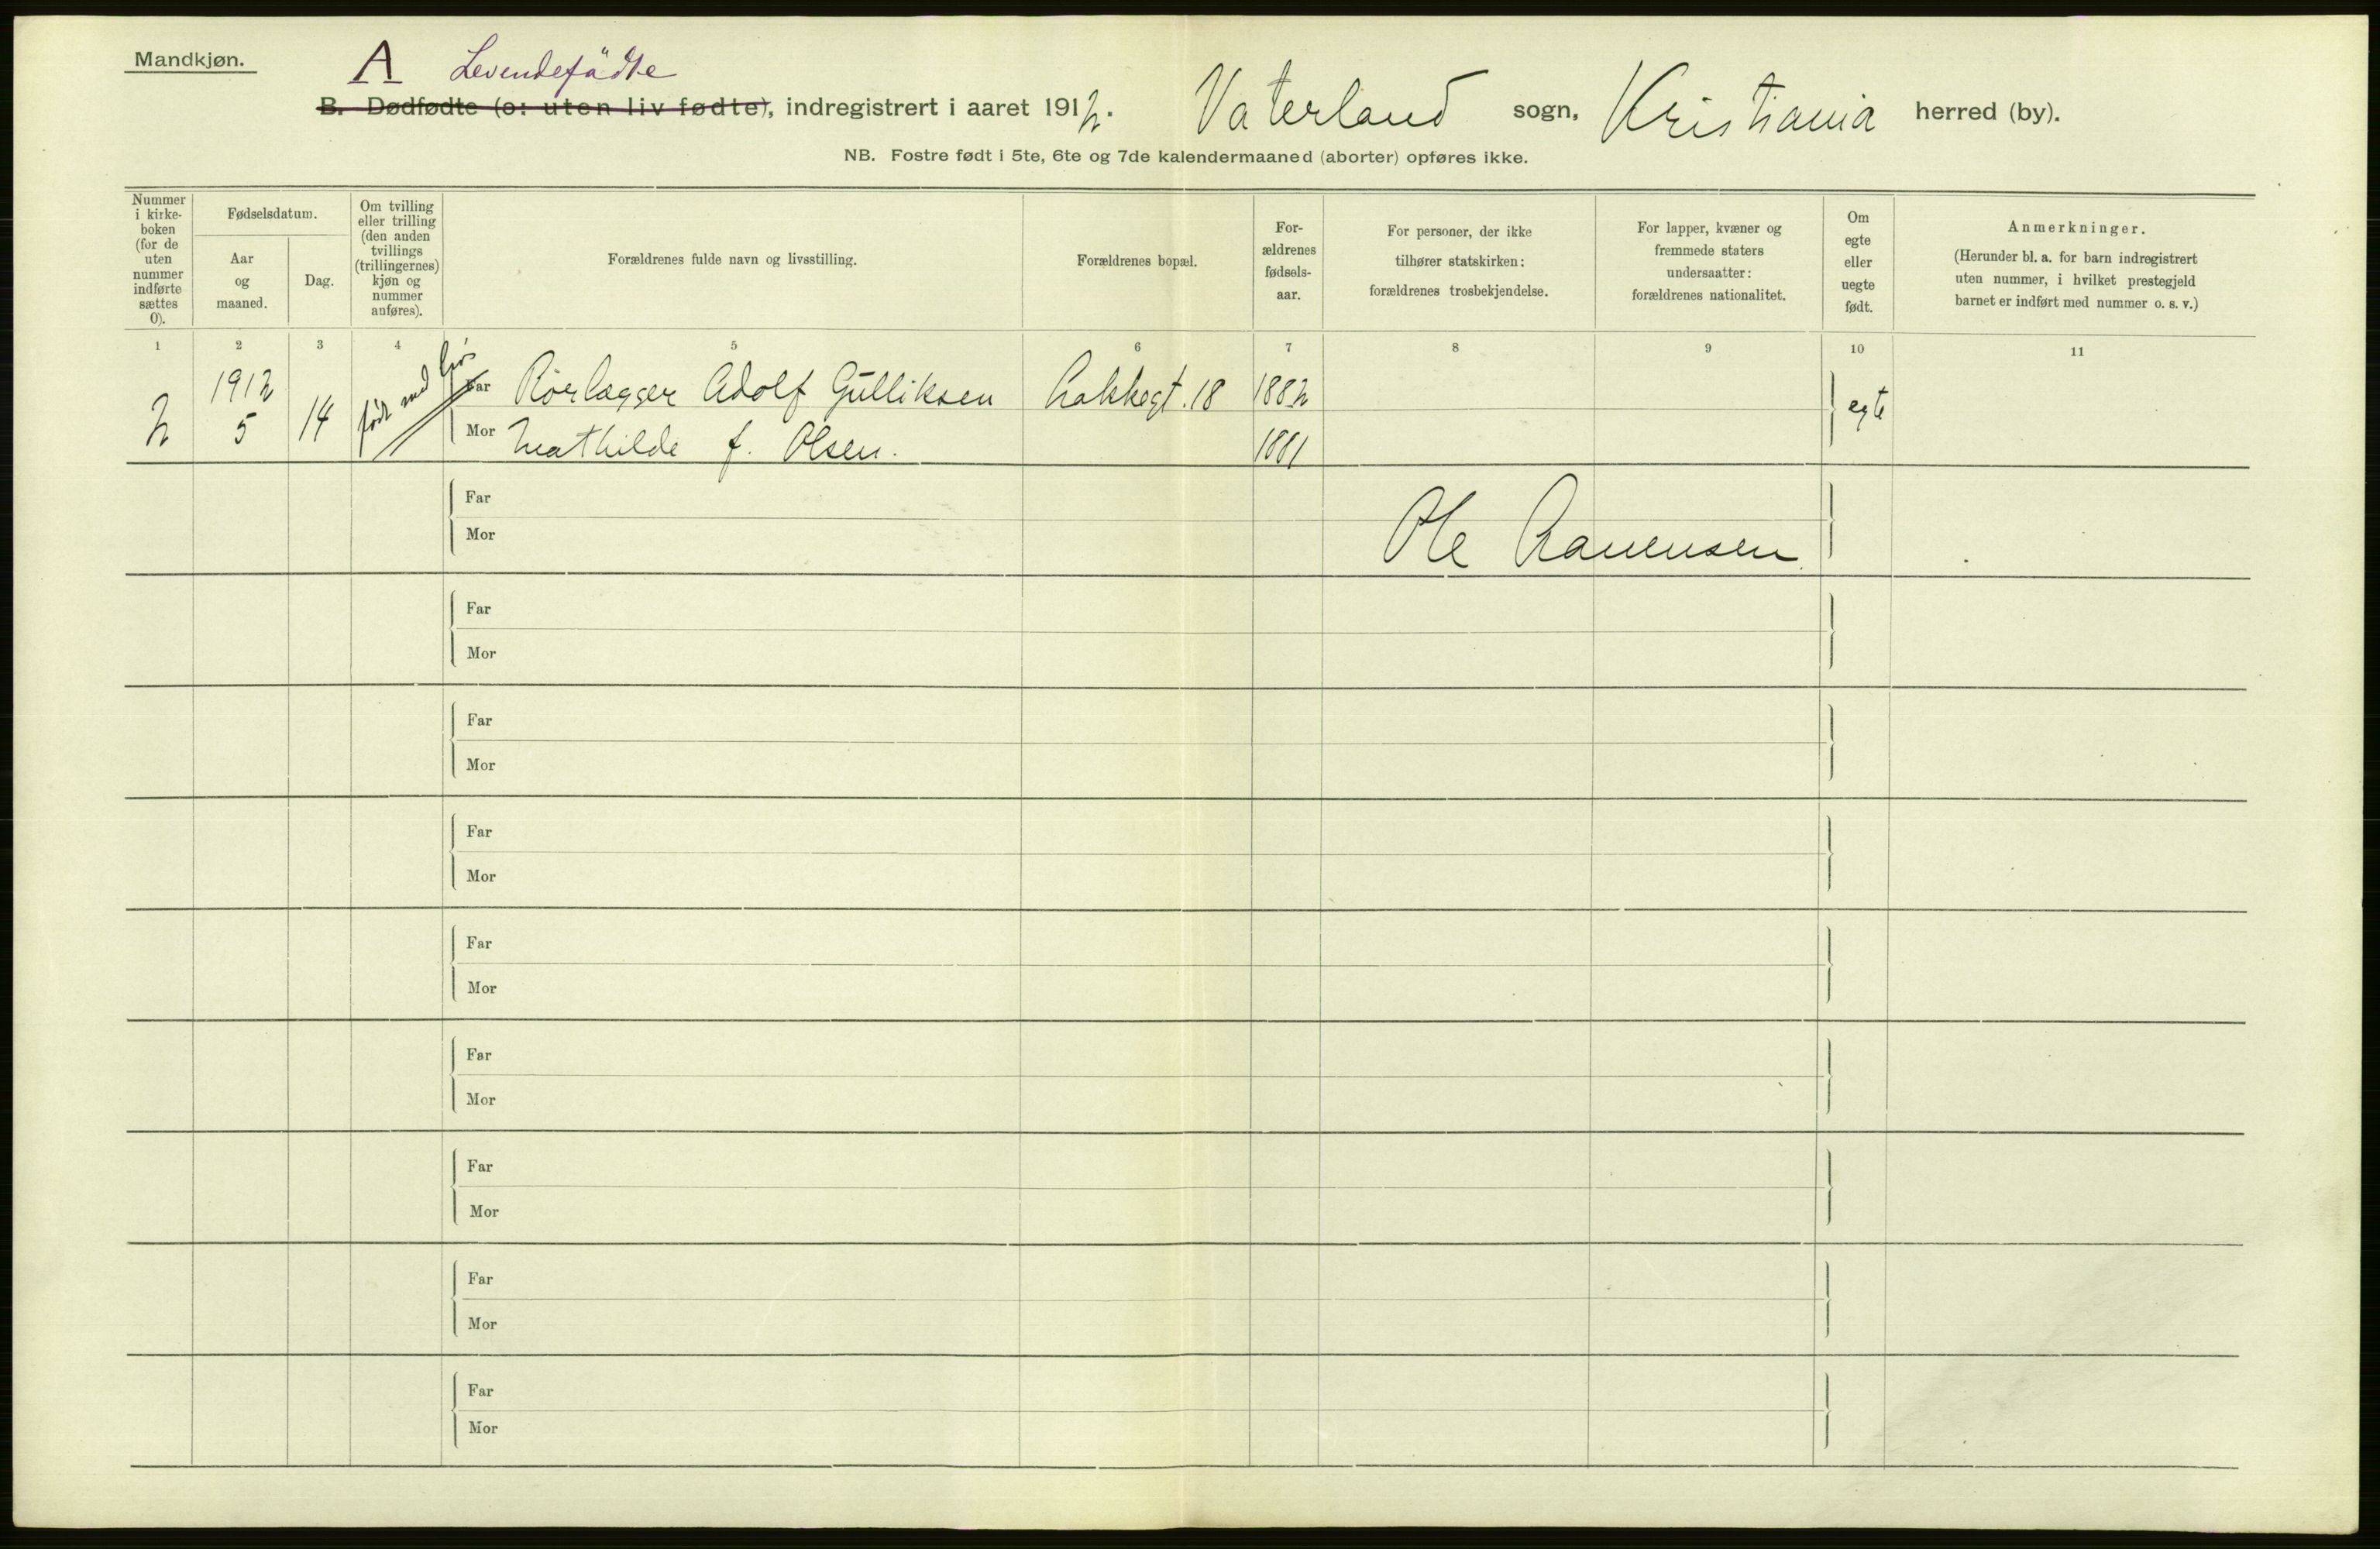 Mandkjøn.
A Levendefödte
B. Dødfødte (o: uten liv fødte), indregistrert i aaret 1912. Vaterland sogn, Kristiania herred (by).
NB. Fostre født i 5te, 6te og 7de kalendermaaned (aborter) opføres ikke.
Nummer
i kirke-
boken
(for de
uten
nummer
indførte
sættes
0).
Fødselsdatum.
Aar
og
maaned.
Dag.
Om tvilling
eller trilling
(den anden
tvillings
(trillingernes)
kjøn og
nummer
anføres).
Forældrenes fulde navn og livsstilling.
Forældrenes bopæl.
For-
ældrenes
fødsels-
aar.
For personer, der ikke
tilhører statskirken:
forældrenes trosbekjendelse.
For lapper, kvæner og
fremmede staters
undersaatter:
forældrenes nationalitet.
Om
egte
eller
uegte
født.
Anmerkninger.
(Herunder bl. a. for barn indregistrert
uten nummer, i hvilket prestegjeld
barnet er indført med nummer o. s. v.)
1 2 3 4 5 6 7 8 9 10 11
2 1912 5 14 født med liv
Far Rörlægger Adolf Gulliksen Lakkegt. 18 1882 egte
Mor Mathilde f. Olsen. 1881
Far
Mor
Ole
Far
Mor
Far
Mor
Far
Mor
Far
Mor
Far
Mor
Far
Mor
Far
Mor
Far
Mor